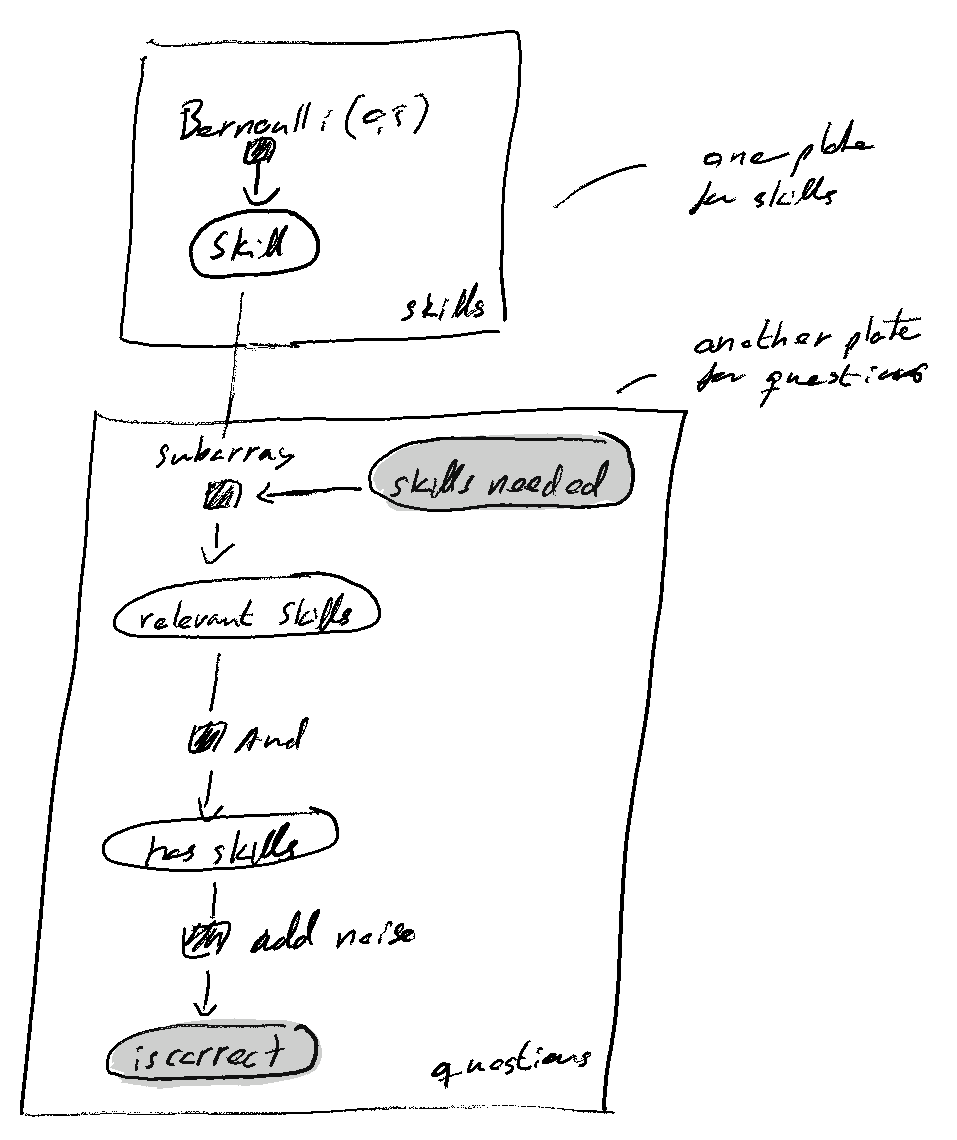 Bernoulli (0,5)
one plate
for skills
skill
skills
another plate
for questions
subarray
skills needed
relevant skills
And
has skills
add noise
iscorrect
questions